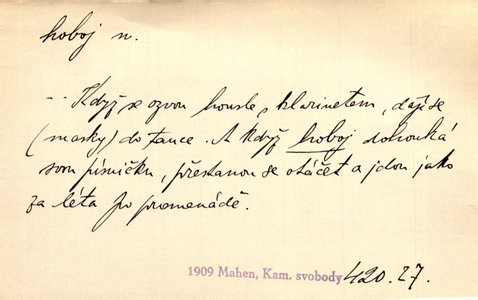 hoboj n.
-- Když se ozvou housle s klarinetem, dají se
(masky) do tance. A když hoboj dohouká
svou písničku, přestanou se otáčet a jdou jako
za léta po promenádě.
1909 Mahen, Kam. svobody 420.27.